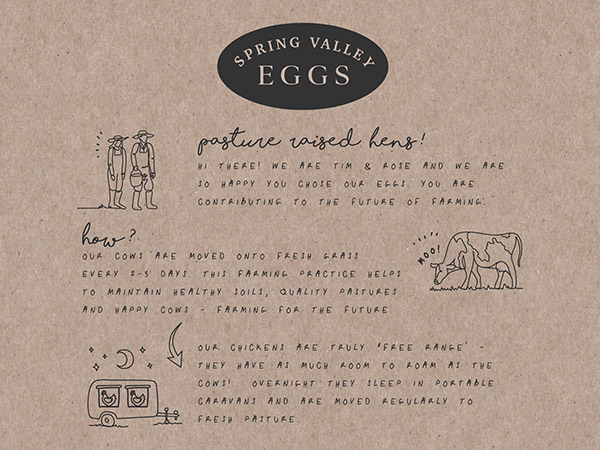 SPRING VALLEY
EGGS
pasture raised hens!
HI THERE! WE ARE TIM & ROSE AND WE ARE
SO HAPPY YOU CHOSE OUR EGGS. YOU ARE
CONTRIBUTING TO THE FUTURE OF FARMING.
how?
OUR COWS ARE MOVED ONTO FRESH GRASS
EVERY 2-3 DAYS. THIS FARMING PRACTICE HELPS
TO MAINTAIN HEALTHY SOILS, QUALITY PASTURES
AND HAPPY COWS - FARMING FOR THE FUTURE
MOO!
OUR CHICKENS ARE TRULY 'FREE RANGE' -
THEY HAVE AS MUCH ROOM TO ROAM AS THE
COWS! OVERNIGHT THEY SLEEP IN PORTABLE
CARAVANS AND ARE MOVED REGULARLY TO
FRESH PASTURE.